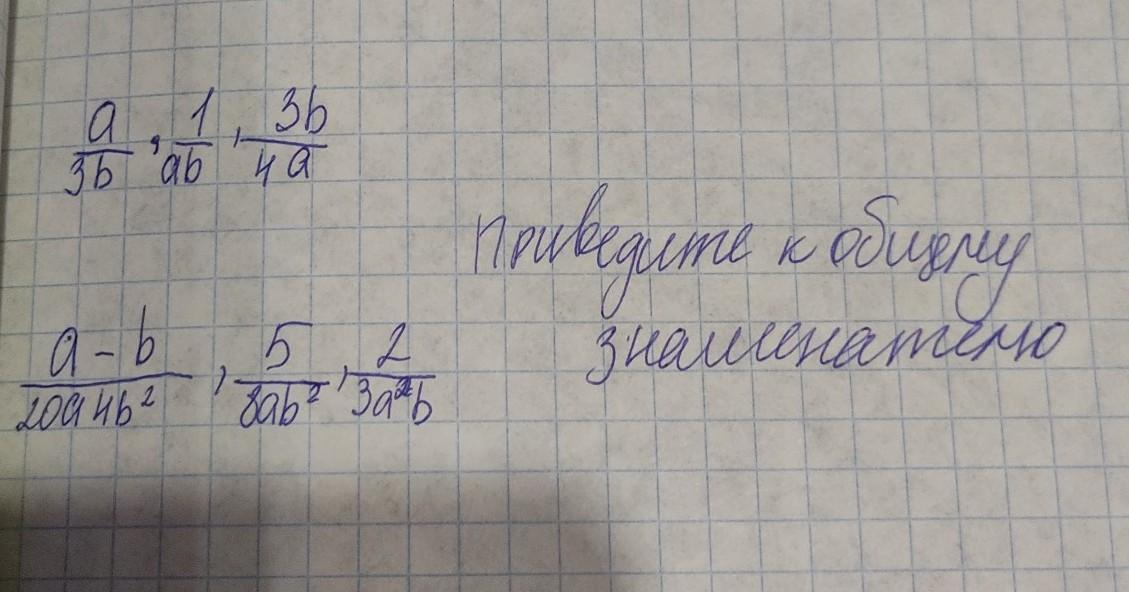 a/3b, 1/ab, 3b/4a
Приведите к общему
знаменателю
a-b/20a4b², 5/8ab², 2/3a²b